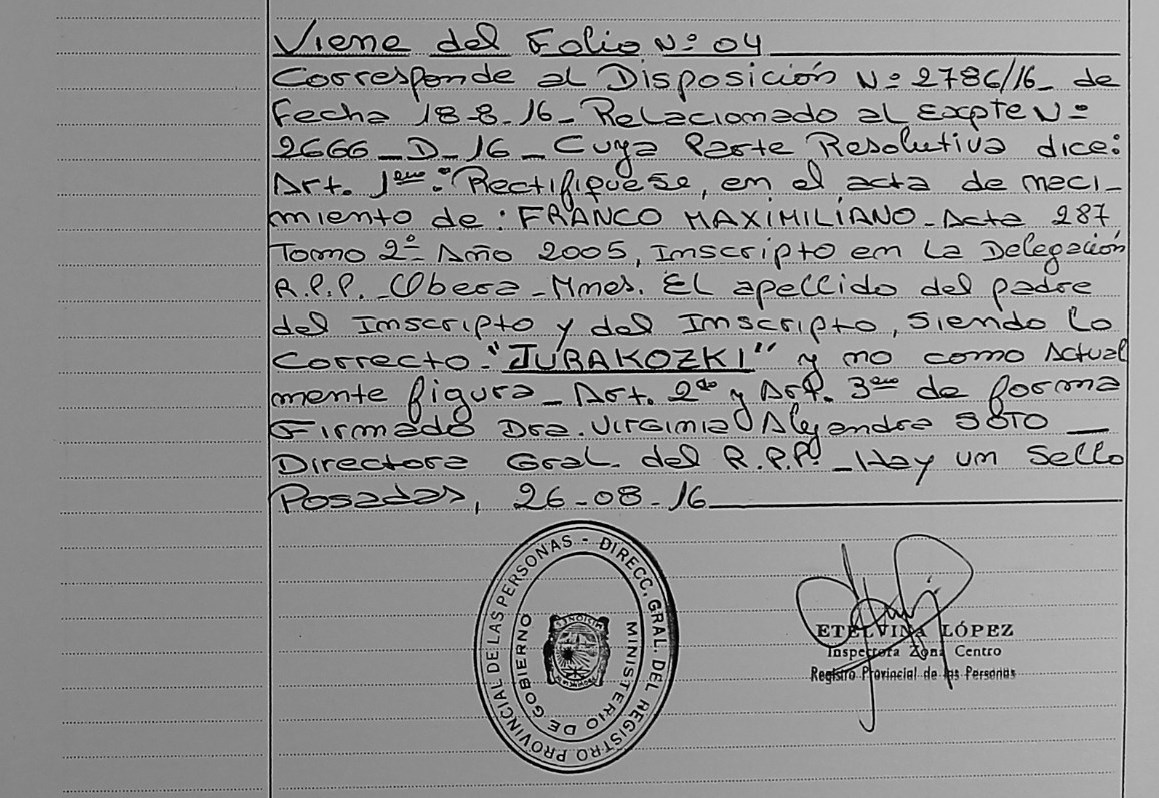 Viene del Folio Nº 04
Corresponde al Disposición Nº 2786/16_ de
Fecha 18-8-16_ Relacionado al Expte Nº
2666_D_16_ Cuya Parte Resolutiva dice:
Art. 1ero: "Rectifiquese, en el acta de naci_
miento de: FRANCO MAXIMILIANO_ Acta 287
Tomo 2º Año 2005, Inscripto en La Delegación
R.P.P._ Obera_Mnes. El apellido del padre
del Inscripto y del Inscripto, siendo lo
correcto "JURAKOZKI" y no como Actual
mente figura_ Art. 2do y Art. 3ero de forma
Firmado Dra. Virginia Alejandra SOTO_
Directora Gral. del R.P.P. _Hay un Sello
Posadas, 26-08-16
DIRECC. GRAL. DEL REGISTRO PROVINCIAL DE LAS PERSONAS -
MINISTERIO DE GOBIERNO
ETELVINA LÓPEZ
Inspectora Zona Centro
Registro Provincial de las Personas